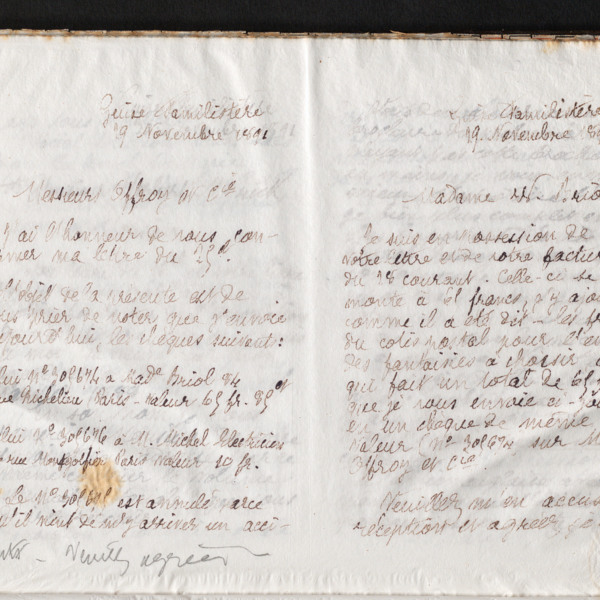 Guise Familistère
19 Novembre 1891
Messieurs Offroy et Cie
J'ai l'honneur de vous con-
firmer ma lettre du 15 ct.
L'objet de la présente est de
vous prier de noter que j'envoie
aujourd'hui, les chèques suivants:
Celui No 308674 à Made Briol 84
rue Richelieu Paris - valeur 65 fr. 85
Celui No 308676 à M. Michel Electricien
rue Montgolfier Paris valeur 10 fr.
Le No 308675 est annulé parce
qu'il vient de m'y arriver un acci-
dent - Veuillez agréer
Familistère
19 Novembre 189
Madame
Je suis en possession de
votre lettre et de votre facture
du 18 courant. Celle-ci se
monte à 61 francs, j'y ajou
comme il a été dit - les
du colis postal pour l'en
des fantaisies à choisir
qui fait un total de 65
que je vous envoie ci-
en un chèque de même
valeur (No 308674 sur M
Offroy et Cie.
Veuillez m'en accus
réception et agréer,